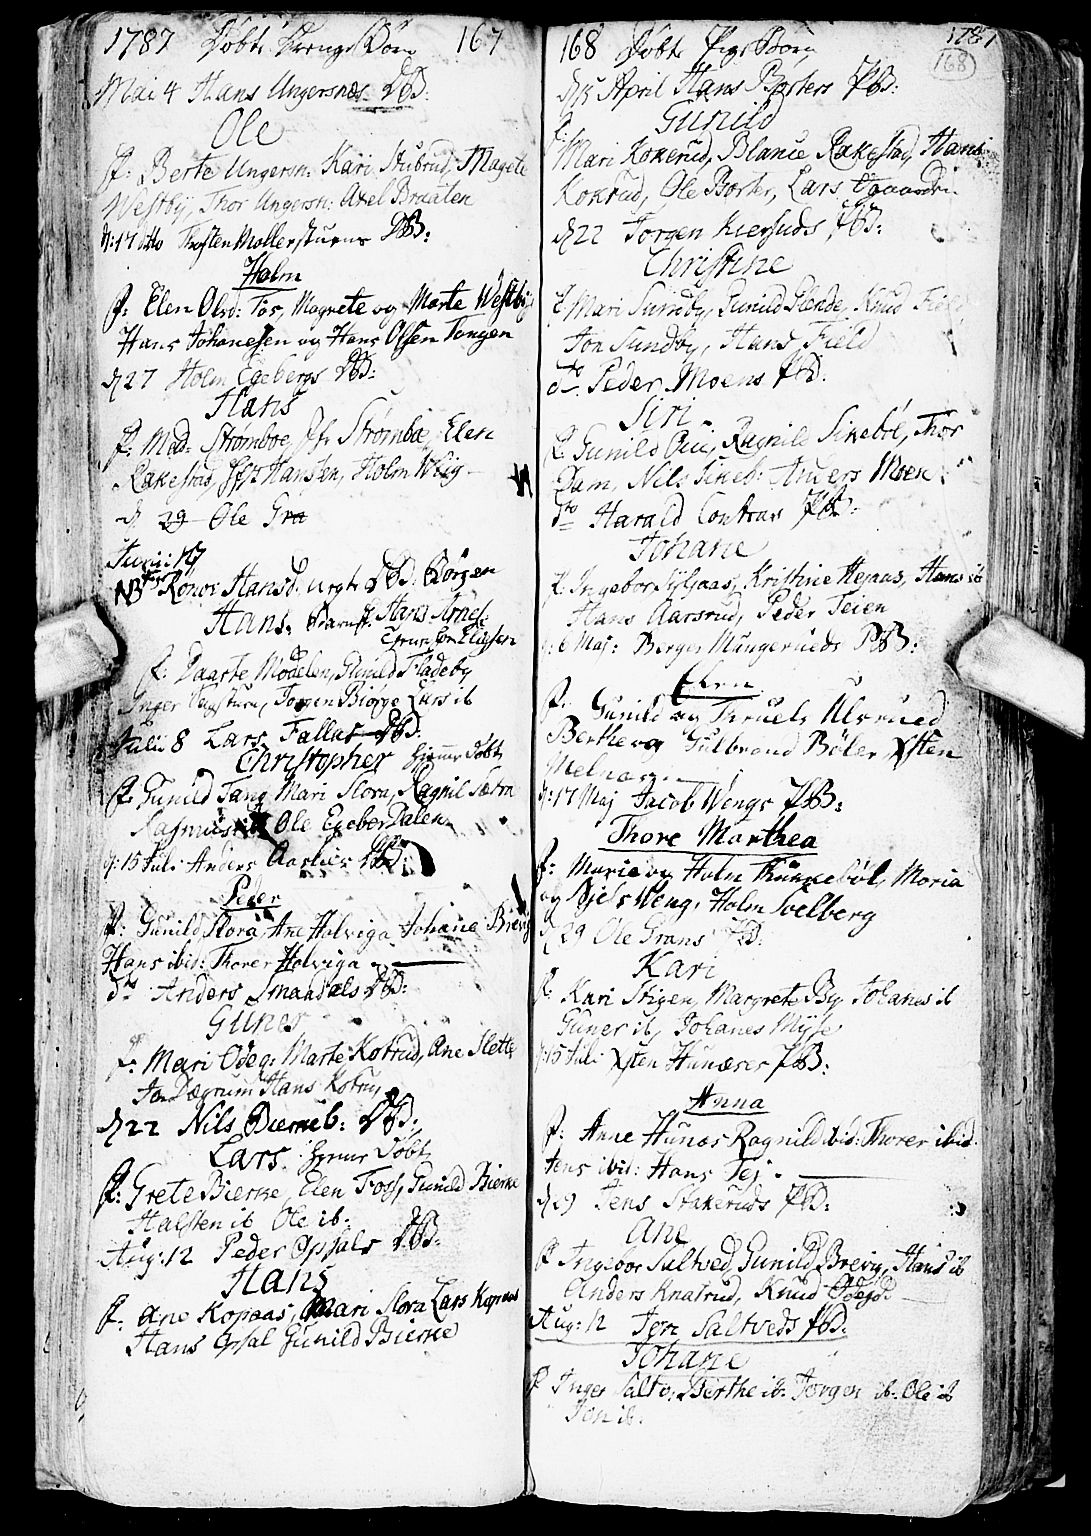 1787 Døbte Drenge Børn 167
Mai 4 Hans Ungersnæs DB:
Ole
F: Berte Ungersn: Kari Stubrud, Magrete
Westby, Thor Ungersn: Axel Braaten
d: 17 dito Thosten Mollerstuens DB:
Holm
F: Elen Olsd: Tos, Magrete og Marte Westby
Hans Johanesen og Hans Olsen Tangen
d 27 Holm Egebergs DB:
Hans
F: Mad: Strømboe, Jfr Strømboe, Elen
Rakestad, Hansen, Holm Wiig
d 29 Ole Gra
Junii 17
NB Ronov Hansd: DB: Børgen
Hans. Hans Arnes:
F: Daarte Modelen, Gunild Fladeby
Inger, Jørgen Biørge Lars ib
Julii 8 Lars Fallas DB:
Christopher hjemme døbt
F: Gunild Tang Mari Slora, Ragnil Sætra
Rasmus Ole EgeberDalen
d: 15 Juli Anders Aaslies DB:
Peder
F: Gunild Slora, Ane Holviga Johane Brevig
Hans ibid: Thorer Holviga
dto Anders Smaadals DB:
Guner
F: Mari Odeg: Marte Kotrud, Ane Slette
Jon Dægrum Hans Kotrud
d 22 Nils Bierkeb: DB:
Lars. hjemme døbt
F: Grete Bierke, Elen Foss, Gunild Bierke
Halsten ib Ole ib:
Aug: 12 Peder Opsals DB:
Hans
F: Ane Kopaas, Mari Slora Lars Kopaas
Hans Opsal Gunild Bierke
168 Døbte Pige Børn 1787
168
d 15 April Hans Børters PB:
Gunild
F: Mari Kokerud, Blansie Rakestad, Hans
Kokrud, Ole Borter, Lars
d 22 Jorgen Kierfuds PB:
Christine
F Mari Sundby, Gunild Glende, Knud
Jon Sundby, Hans Field
dto Peder Moens PB.
Siri
F Gunild Qui, Ragnild Sikebøl, Thor
Dam, Nils Sikeb: Anders Moen
dto Harald PB:
Johane
F: Ingebor, Kristine Hemas, Hans ib
Hans Aarsrud, Peder Teien
6 Maj: Berge Mungeruds PB:
Elen
F: Gunild og Truels Ulsrued
Berthe og Gulbrand Bøler Xsten
Melna
d: 17 Maj Jacob Wengs PB:
Thore Marthea
F: Marie og Holm Kinnebøl, Maria
og Niels Weng, Holm Soelberg
d 29 Ole Grans PB:
Kari
F Kari Stigen, Margrete By Johanes ib
Guner ib, Johanes Myse
d: 15 Juli Xsten Hunæses PB:
Anna
F: Anne Hunæs Ragnild ibid: Thorer ibid.
Jens ibid: Hans Tej.
d 29 Jens Stakeruds PB:
Ane
F Ingebor Saltved Gunild Brevig, Hans ib
Anders Knatrud, Knud Ødegd
Aug: 12 Jon Saltveds PB:
Johane
F Inger Saltv: Berthe ib: Jorgen ib. Ole ib
Jon ib.